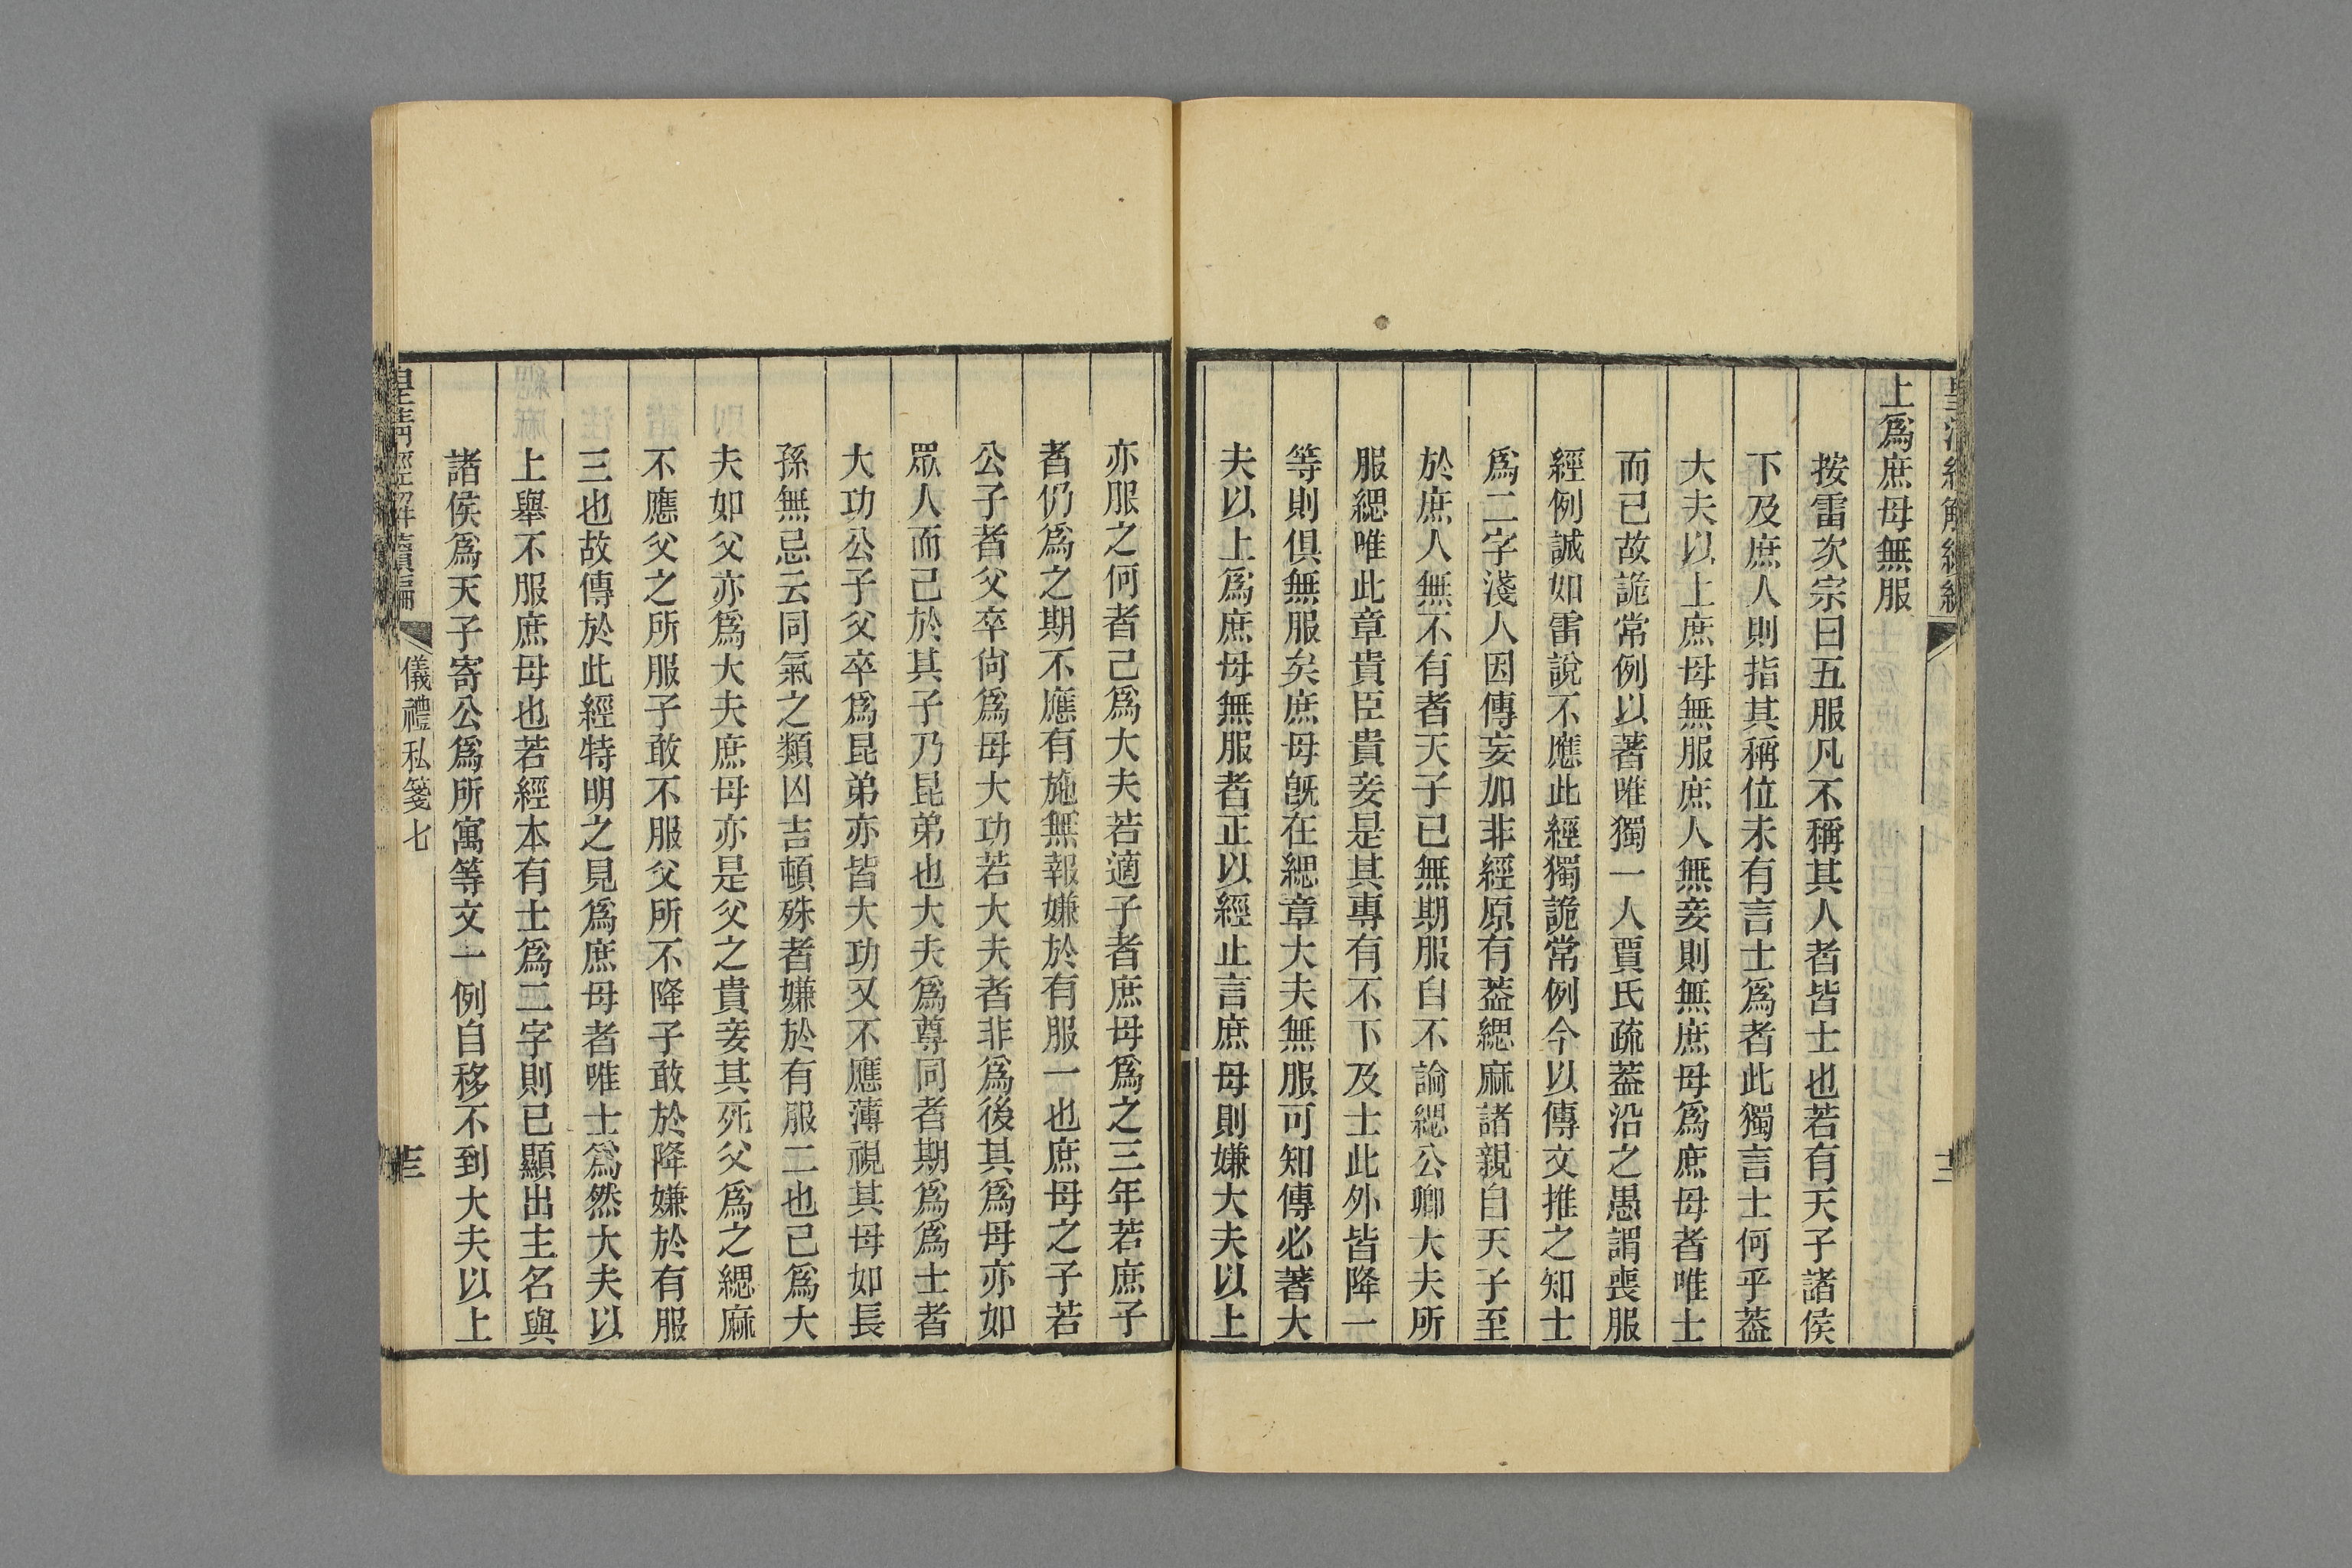 上爲庶母無服
按雷次宗曰五服凡不稱其人者皆士也若有天子諸侯
下及庶人則指其稱位未有言士爲者此獨言士何乎葢
大夫以上庶母無服庶人無妾則無庶母爲庶母者唯士
而已故詭常例以著唯獨一人賈氏疏葢沿之愚謂喪服
經例誠如雷說不應此經獨詭常例今以傳文推之知士
爲二字淺人因傳妄加非經原有葢緦麻諸親自天子至
於庶人無不有者天子已無期服自不論緦公卿大夫所
服緦唯此章貴臣貴妾是其專有不下及士此外皆降一
等則俱無服矣庶母旣在緦章大夫無服可知傳必著大
夫以上爲庶母無服者正以經止言庶母則嫌大夫以上
亦服之何者己爲大夫若適子者庶母爲之三年若庶子
者仍爲之期不應有施無報嫌於有服一也庶母之子若
公子者父卒尙爲母大功若大夫者非爲後其爲母亦如
眾人而己於其子乃昆弟也大夫爲尊同者期爲爲士者
大功公子父卒爲昆弟亦皆大功又不應薄視其母如長
孫無忌云同氣之類凶吉頓殊者嫌於有服二也己爲大
夫如父亦爲大夫庶母亦是父之貴妾其死父爲之緦麻
不應父之所服子敢不服父所不降子敢於降嫌於有服
三也故傳於此經特明之見爲庶母者唯士爲然大夫以
上舉不服庶母也若經本有士爲二字則已顯出主名與
諸侯爲天子寄公爲所寓等文一例自移不到大夫以上
皇淸經解續編
儀禮私箋七